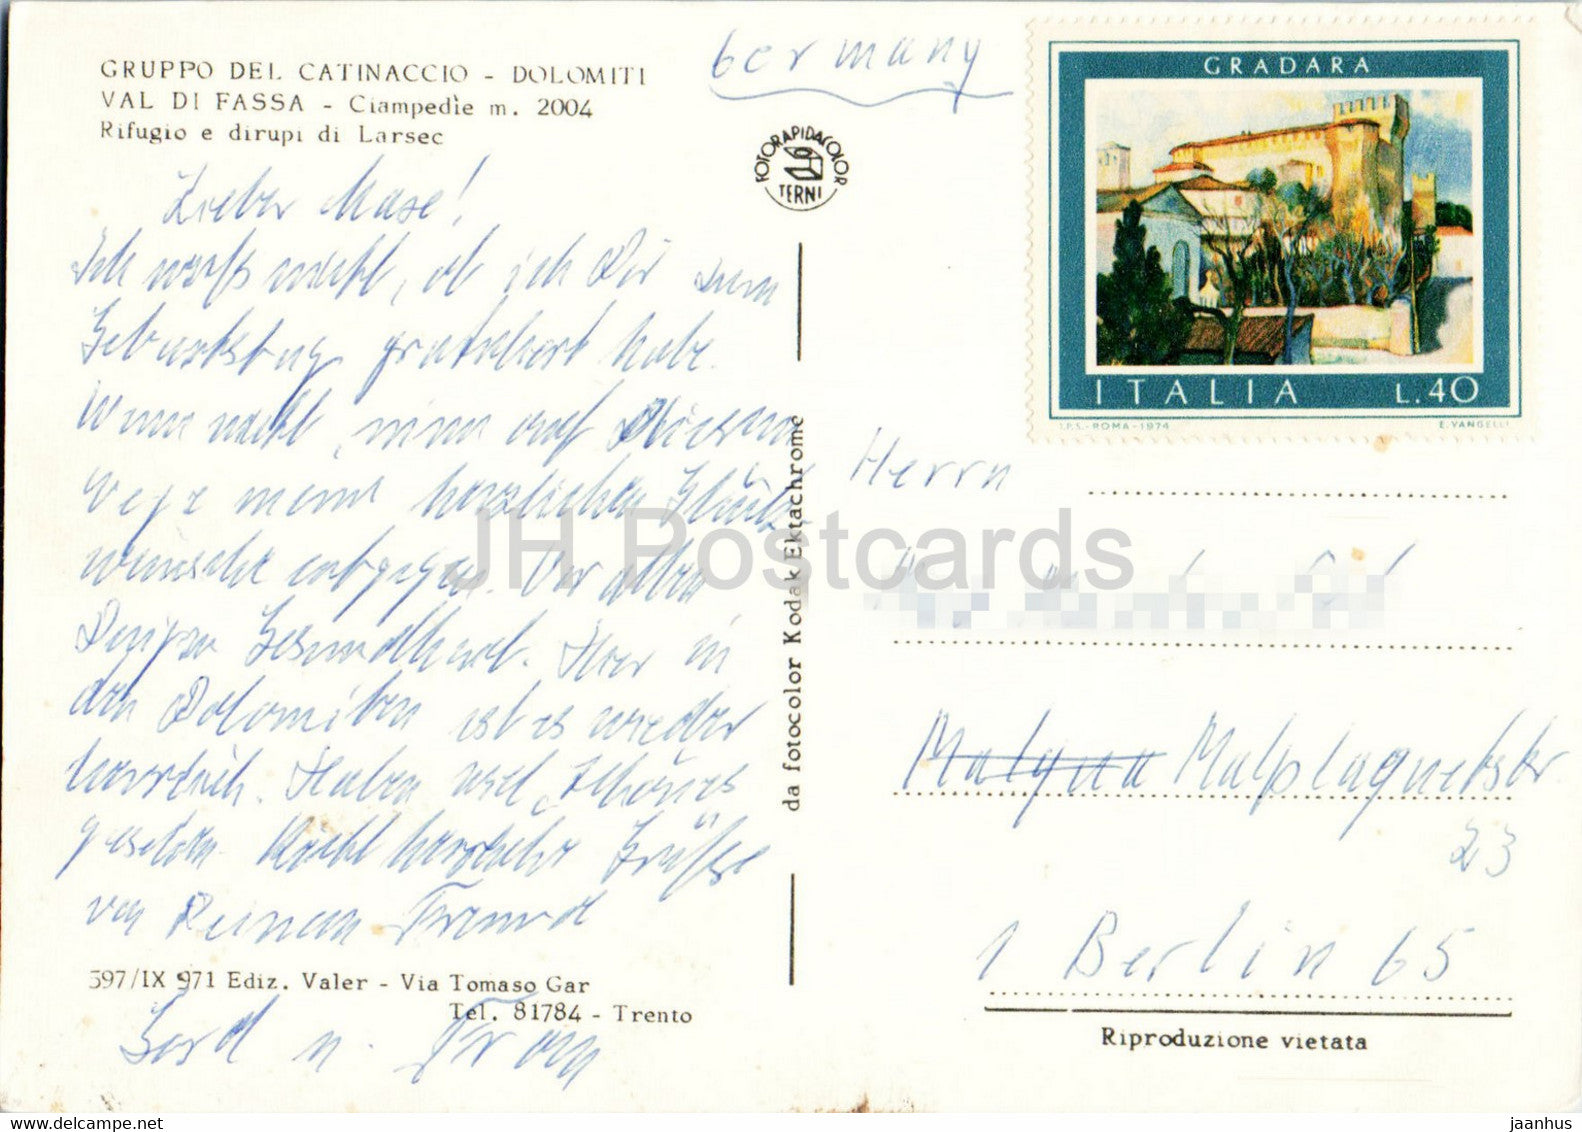 GRUPPO DEL CATINACCIO - DOLOMITI
VAL DI FASSA - Ciampedìe m. 2004
Rifugio e dirupi di Larsec
Lieber Maxe!
Ich weiß nicht, ob ich Dir zum
Geburtstag gratuliert habe.
Wenn nicht, nimm auf diesem
Wege meine herzlichen Glück
wünsche entgegen. Vor allen
Dingen Gesundheit. Hier in
den Dolomiten ist es wieder
herrlich. Haben viel Schönes
gesehen. Recht herzliche Grüße
von Deinem Freund
Gerd u. Frau
597/IX 971 Ediz. Valer - Via Tomaso Gar
Tel. 81784 - Trento
FOTORAPIDACOLOR
TERNI
da fotocolor Kodak Ektachrome
Germany
GRADARA
ITALIA L.40
I.P.S.-ROMA-1974 E. VANGELLI
Herrn
Malplaquetstr
23
1 Berlin 65
Riproduzione vietata
JH Postcards
www.delcampe.net
jaanhus